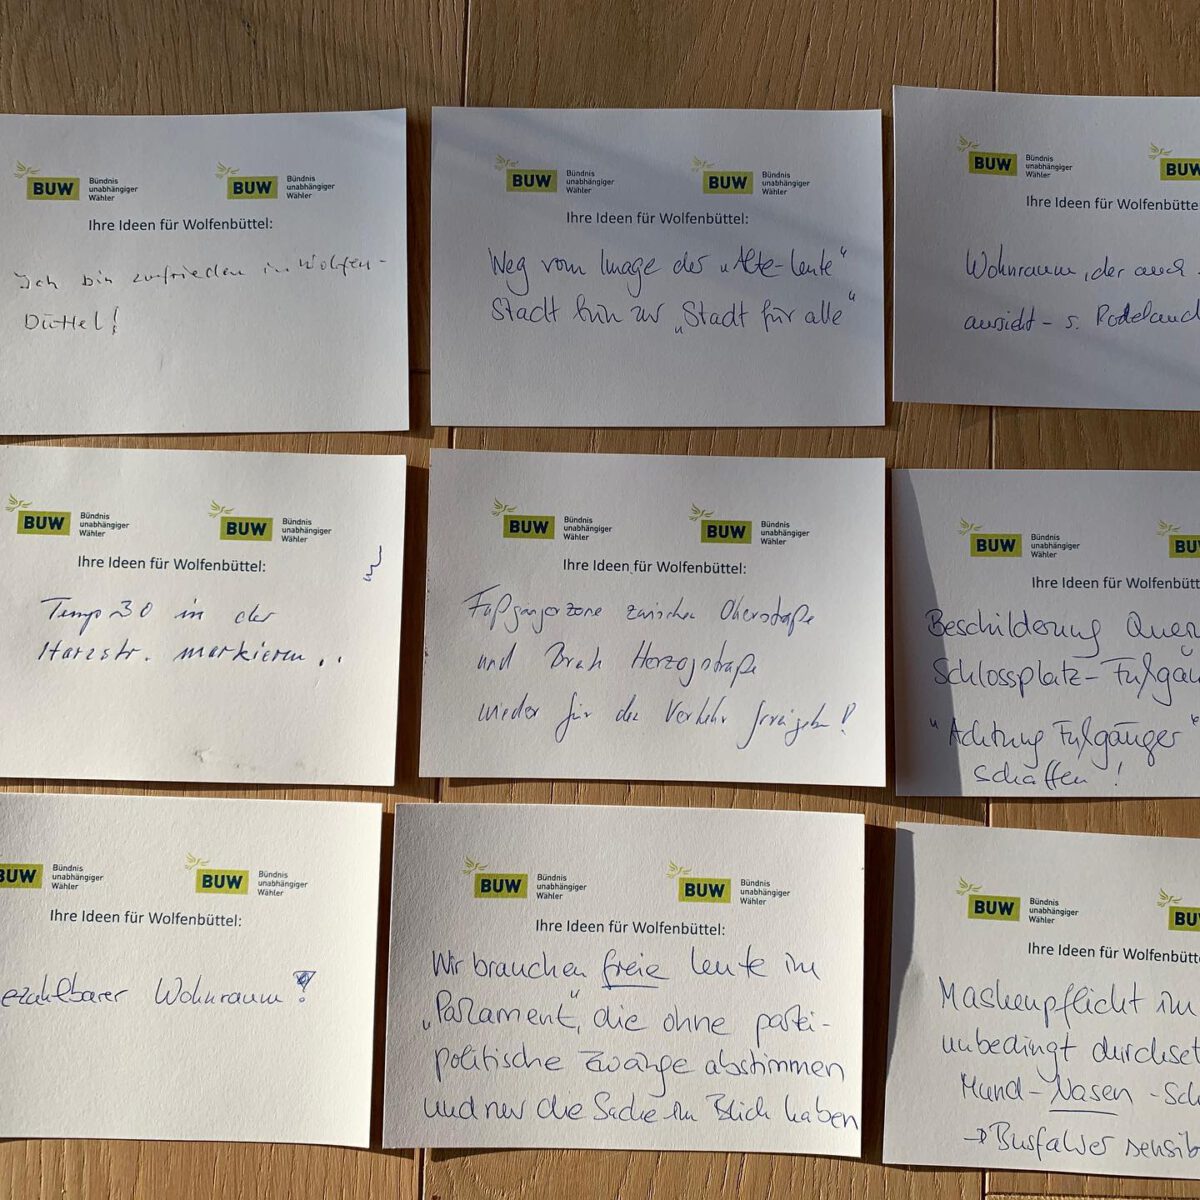 BUW Bündnis unabhängiger Wähler BUW Bündnis unabhängiger Wähler
Ihre Ideen für Wolfenbüttel:
Ich bin zufrieden in Wolfen-
Düttel!
BUW Bündnis unabhängiger Wähler BUW Bündnis unabhängiger Wähler
Ihre Ideen für Wolfenbüttel:
Weg vom Image der „Alte-Leute“
Stadt hin zur „Stadt für alle“
BUW Bündnis unabhängiger Wähler BUW
Ihre Ideen für Wolfenbütte
Wohnraum, der auch
aussieht - s. Rodeland
BUW Bündnis unabhängiger Wähler BUW Bündnis unabhängiger Wähler
Ihre Ideen für Wolfenbüttel:
Tempo 30 in der
Harzstr. markieren..
BUW Bündnis unabhängiger Wähler BUW Bündnis unabhängiger Wähler
Ihre Ideen für Wolfenbüttel:
Fußgängerzone zwischen Okerstraße
und Herzogstraße
wieder für den Verkehr freigeben!
BUW Bündnis unabhängiger Wähler BU
Ihre Ideen für Wolfenbütt
Beschilderung Quer
Schlossplatz- Fußgäu
"Achtung Fußgänger"
schaffen!
BUW Bündnis unabhängiger Wähler BUW Bündnis unabhängiger Wähler
Ihre Ideen für Wolfenbüttel:
ezahlbarer Wohnraum!
BUW Bündnis unabhängiger Wähler BUW Bündnis unabhängiger Wähler
Ihre Ideen für Wolfenbüttel:
Wir brauchen freie Leute im
„Parlament“, die ohne partei-
politische Zwänge abstimmen
und nur die Sache im Blick haben
BUW Bündnis unabhängiger Wähler BU
Ihre Ideen für Wolfenbütt
Maskenpflicht im
unbedingt durchset
Mund-Nasen-Sch
→ Busfahrer sensib